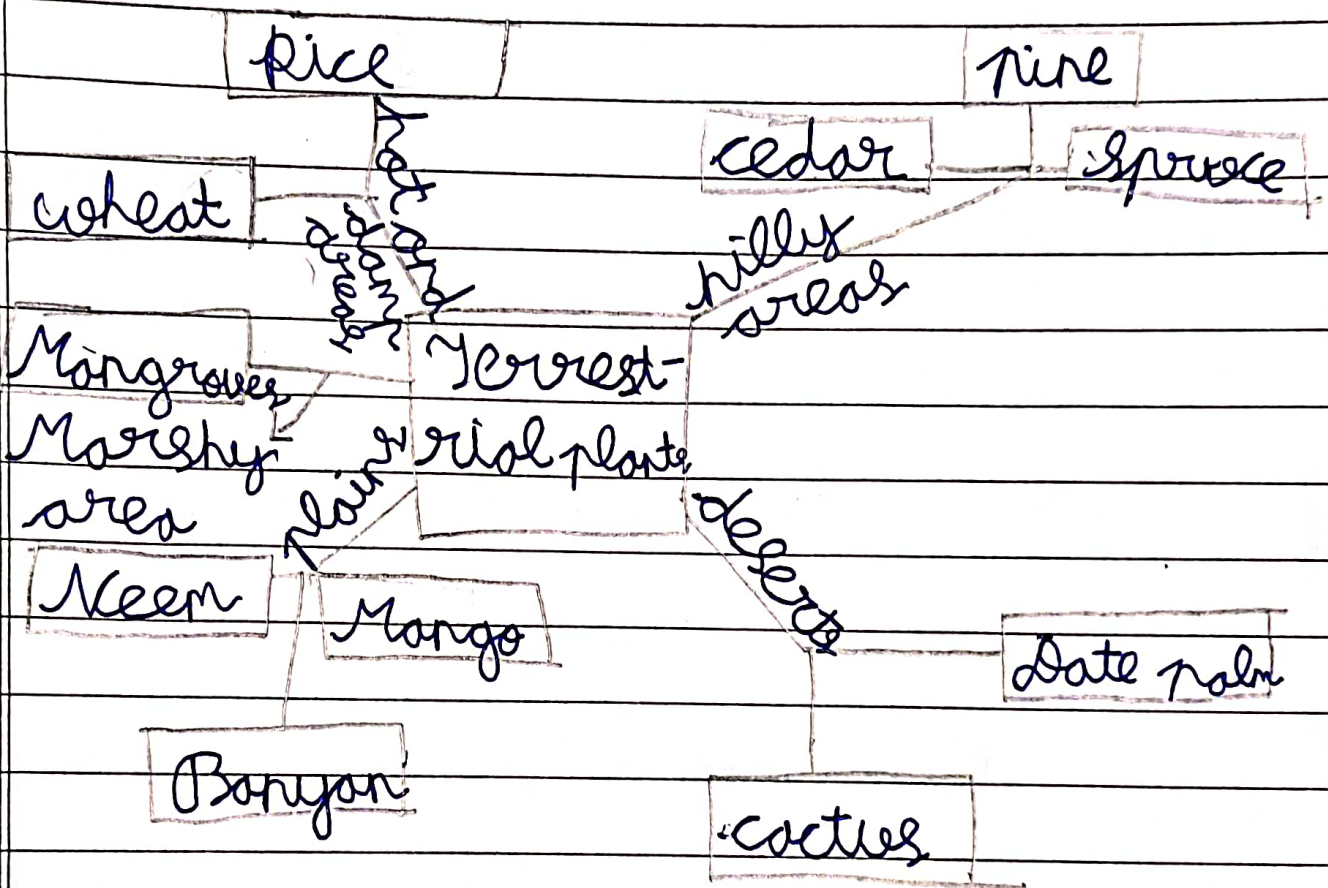 Rice
pine
cedar
Spruce
wheat
hot and
damp
areas
hilly
areas
Mangroves
Terrest-
rial plants
Marshy
area
plains
deserts
Neem
Mango
Date palm
Banyan
cactus